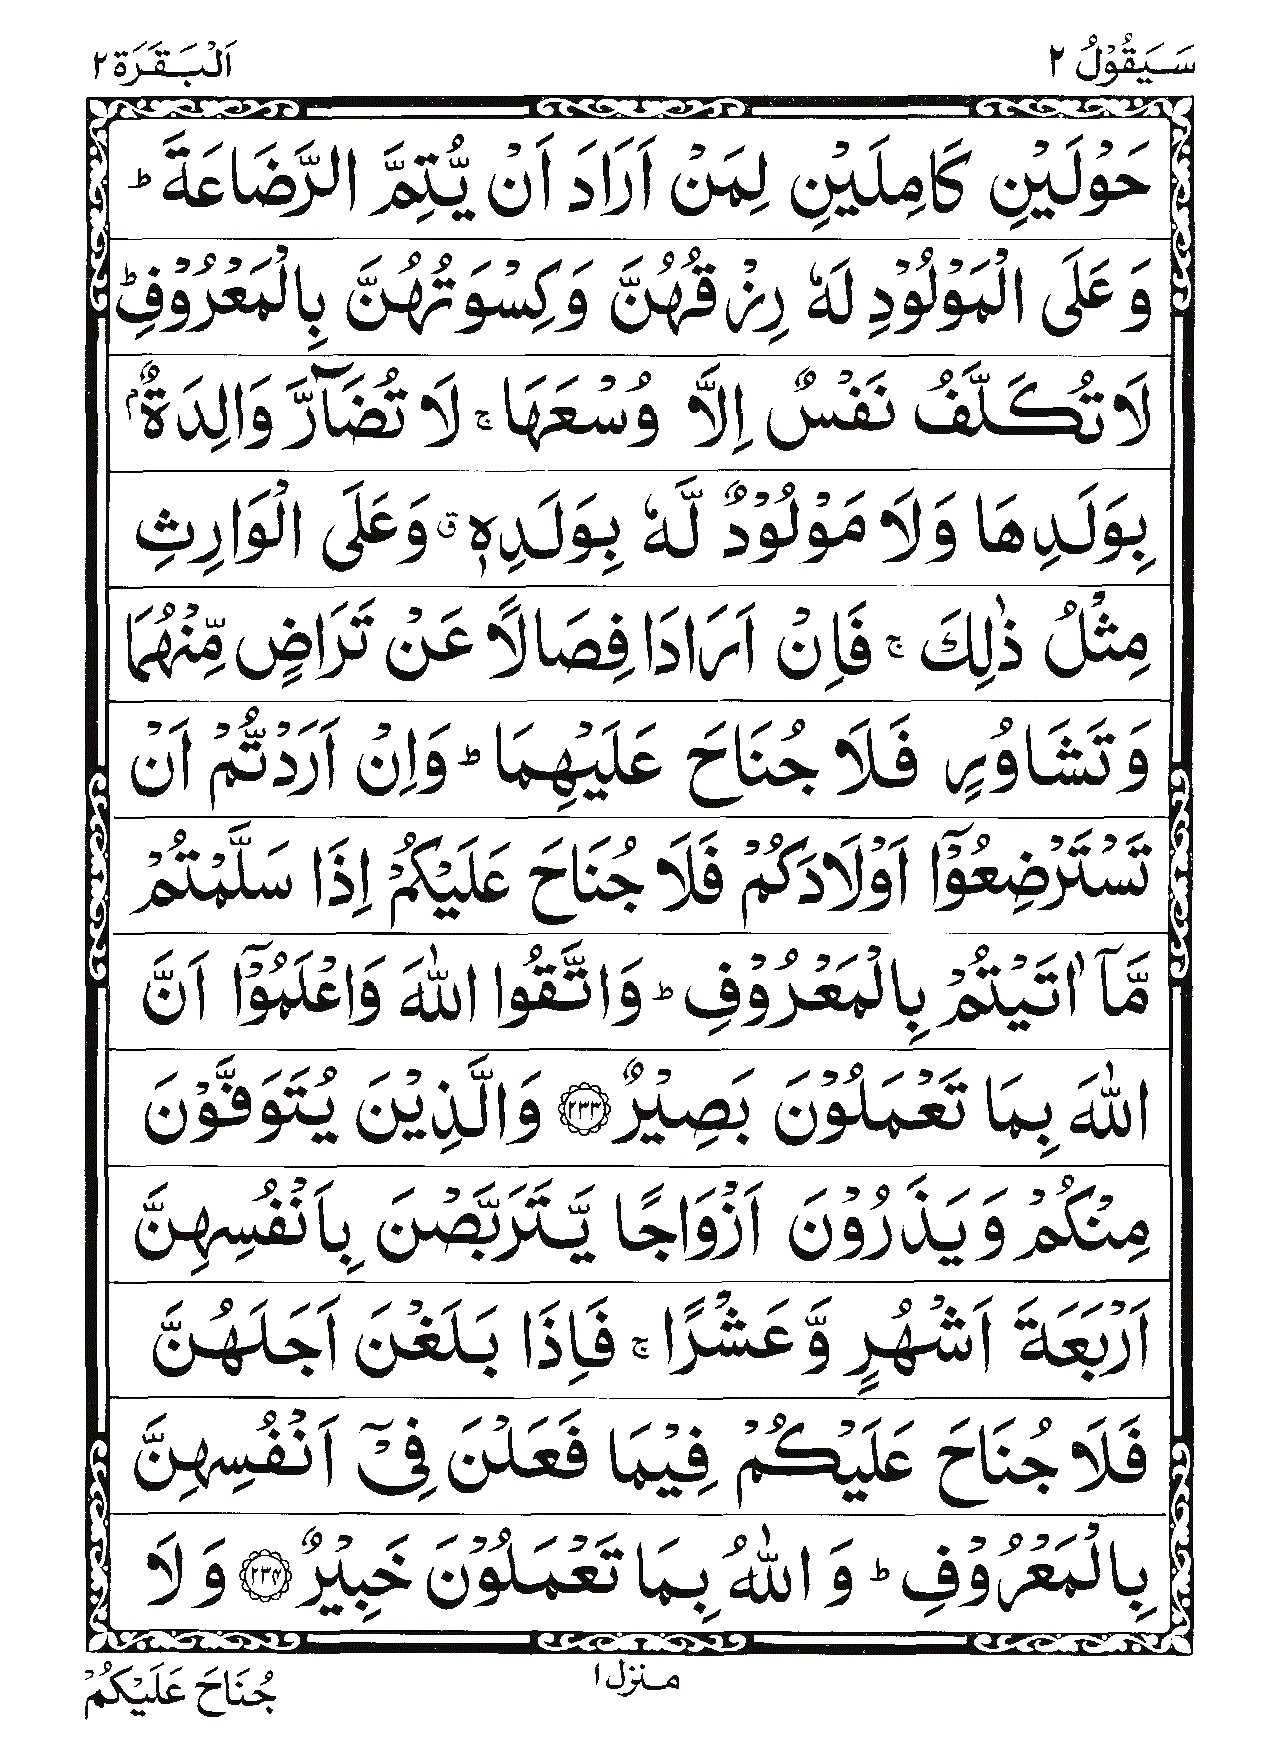 سَيَقُوْلُ ٢
اَلْبَقَرَة ٢
حَوْلَيْنِ كَامِلَيْنِ لِمَنْ اَرَادَ اَنْ يُّتِمَّ الرَّضَاعَةَ ؕ
وَعَلَى الْمَوْلُوْدِ لَهٗ رِزْقُهُنَّ وَكِسْوَتُهُنَّ بِالْمَعْرُوْفِ ؕ
لَا تُكَلَّفُ نَفْسٌ اِلَّا وُسْعَهَا ۚ لَا تُضَآرَّ وَالِدَةٌۢ
بِوَلَدِهَا وَلَا مَوْلُوْدٌ لَّهٗ بِوَلَدِهٖ ۗ وَعَلَى الْوَارِثِ
مِثْلُ ذٰلِكَ ۚ فَاِنْ اَرَادَا فِصَالًا عَنْ تَرَاضٍ مِّنْهُمَا
وَتَشَاوُرٍ فَلَا جُنَاحَ عَلَيْهِمَا ؕ وَاِنْ اَرَدْتُّمْ اَنْ
تَسْتَرْضِعُوْٓا اَوْلَادَكُمْ فَلَا جُنَاحَ عَلَيْكُمْ اِذَا سَلَّمْتُمْ
مَّآ اٰتَيْتُمْ بِالْمَعْرُوْفِ ؕ وَاتَّقُوا اللّٰهَ وَاعْلَمُوْٓا اَنَّ
اللّٰهَ بِمَا تَعْمَلُوْنَ بَصِيْرٌ ﴿٢٣٣﴾ وَالَّذِيْنَ يُتَوَفَّوْنَ
مِنْكُمْ وَيَذَرُوْنَ اَزْوَاجًا يَّتَرَبَّصْنَ بِاَنْفُسِهِنَّ
اَرْبَعَةَ اَشْهُرٍ وَّعَشْرًا ۚ فَاِذَا بَلَغْنَ اَجَلَهُنَّ
فَلَا جُنَاحَ عَلَيْكُمْ فِيْمَا فَعَلْنَ فِيْٓ اَنْفُسِهِنَّ
بِالْمَعْرُوْفِ ؕ وَاللّٰهُ بِمَا تَعْمَلُوْنَ خَبِيْرٌ ﴿٢٣٤﴾ وَلَا
منزل ١
جُنَاحَ عَلَيْكُمْ